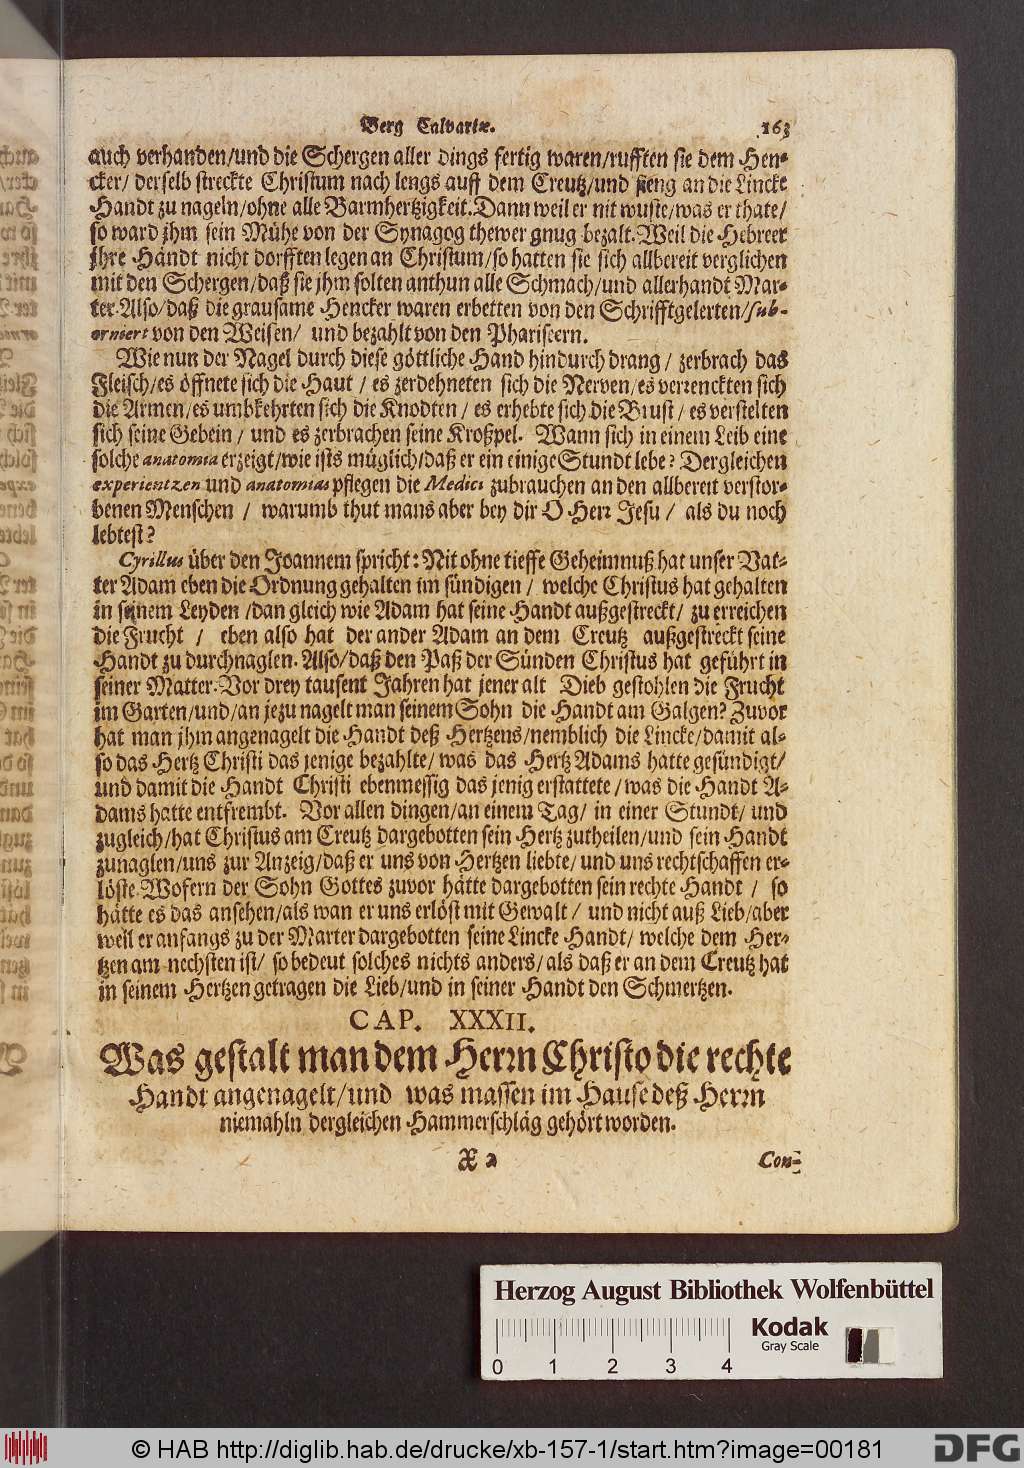 Berg Calvariæ. 163
auch verhanden/und die Schergen aller dings fertig waren/rufften sie dem Hen-
cker/ derselb streckte Christum nach lengs auff dem Creutz/und fieng an die Lincke
Handt zu nageln/ohne alle Barmhertzigkeit. Dann weil er nit wuste/was er thate/
so ward jhm sein Mühe von der Synagog thewer gnug bezalt. Weil die Hebreer
jhre Händt nicht dorfften legen an Christum/so hatten sie sich allbereit verglichen
mit den Schergen/daß sie jhm solten anthun alle Schmach/und allerhandt Mar-
ter. Also/daß die grausame Hencker waren erbetten von den Schrifftgelerten/sub-
orniert von den Weisen/ und bezahlt von den Phariseern.
Wie nun der Nagel durch diese göttliche Hand hindurch drang / zerbrach das
Fleisch/es öffnete sich die Haut / es zerdehneten sich die Nerven/es verrenckten sich
die Armen/es umbkehrten sich die Knodten / es erhebte sich die Brust / es verstelten
sich seine Gebein / und es zerbrachen seine Kroßpel. Wann sich in einem Leib eine
solche anatomia erzeigt/wie ists müglich/daß er ein einige Stundt lebe? Dergleichen
experientzen und anatomias pflegen die Medici zubrauchen an den allbereit verstor-
benen Menschen / warumb thut mans aber bey dir O Herr Jesu / als du noch
lebtest?
Cyrillus über den Joannem spricht: Nit ohne tieffe Geheimnuß hat unser Vat-
ter Adam eben die Ordnung gehalten im sündigen / welche Christus hat gehalten
in seinem Leyden /dan gleich wie Adam hat seine Handt außgestreckt/ zu erreichen
die Frucht / eben also hat der ander Adam an dem Creutz außgestreckt seine
Handt zu durchnaglen. Also/daß den Paß der Sünden Christus hat geführt in
seiner Matter. Vor drey tausent Jahren hat jener alt Dieb gestohlen die Frucht
im Garten/und/an jezu nagelt man seinem Sohn die Handt am Galgen? Zuvor
hat man jhm angenagelt die Handt deß Hertzens/nemblich die Lincke/damit al-
so das Hertz Christi das jenige bezahlte/ was das Hertz Adams hatte gesündigt/
und damit die Handt Christi ebenmessig das jenig erstattete/was die Handt A-
dams hatte entfrembt. Vor allen dingen/an einem Tag/ in einer Stundt/ und
zugleich/hat Christus am Creutz dargebotten sein Hertz zutheilen/und sein Handt
zunaglen/uns zur Anzeig/daß er uns von Hertzen liebte/ und uns rechtschaffen er-
löste. Wofern der Sohn Gottes zuvor hätte dargebotten sein rechte Handt / so
hätte es das ansehen/als wan er uns erlöst mit Gewalt / und nicht auß Lieb/aber
weil er anfangs zu der Marter dargebotten seine Lincke Handt/ welche dem Her-
tzen am nechsten ist/ so bedeut solches nichts anders/als daß er an dem Creutz hat
in seinem Hertzen getragen die Lieb/und in seiner Handt den Schmertzen.
CAP. XXXII.
Was gestalt man dem Herrn Christo die rechte
Handt angenagelt/und was massen im Hause deß Herrn
niemahln dergleichen Hammerschläg gehört worden.
X 2 Con-
Herzog August Bibliothek Wolfenbüttel
Kodak
Gray Scale
0 1 2 3 4
© HAB http://diglib.hab.de/drucke/xb-157-1/start.htm?image=00181
DFG